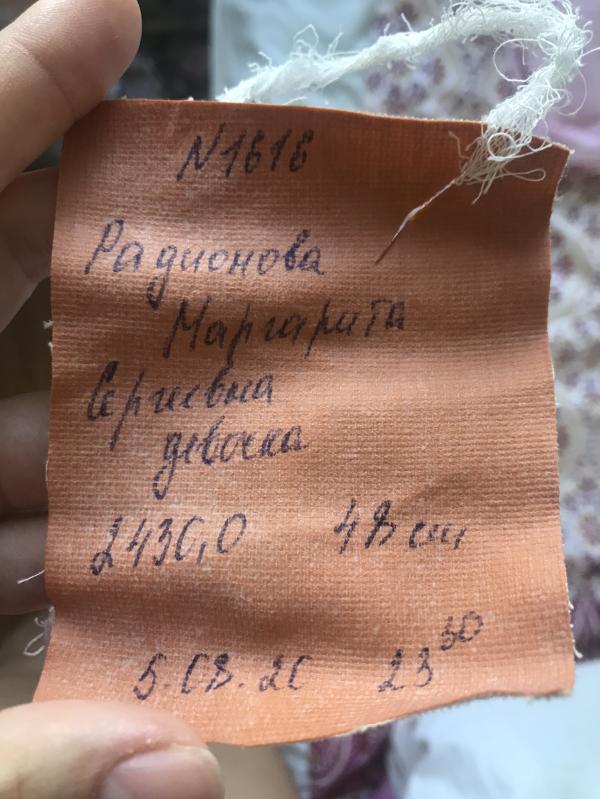 N1616
Радионова
Маргарита
Сергеевна
девочка
2430,0 48 см
5.08.20 23 30